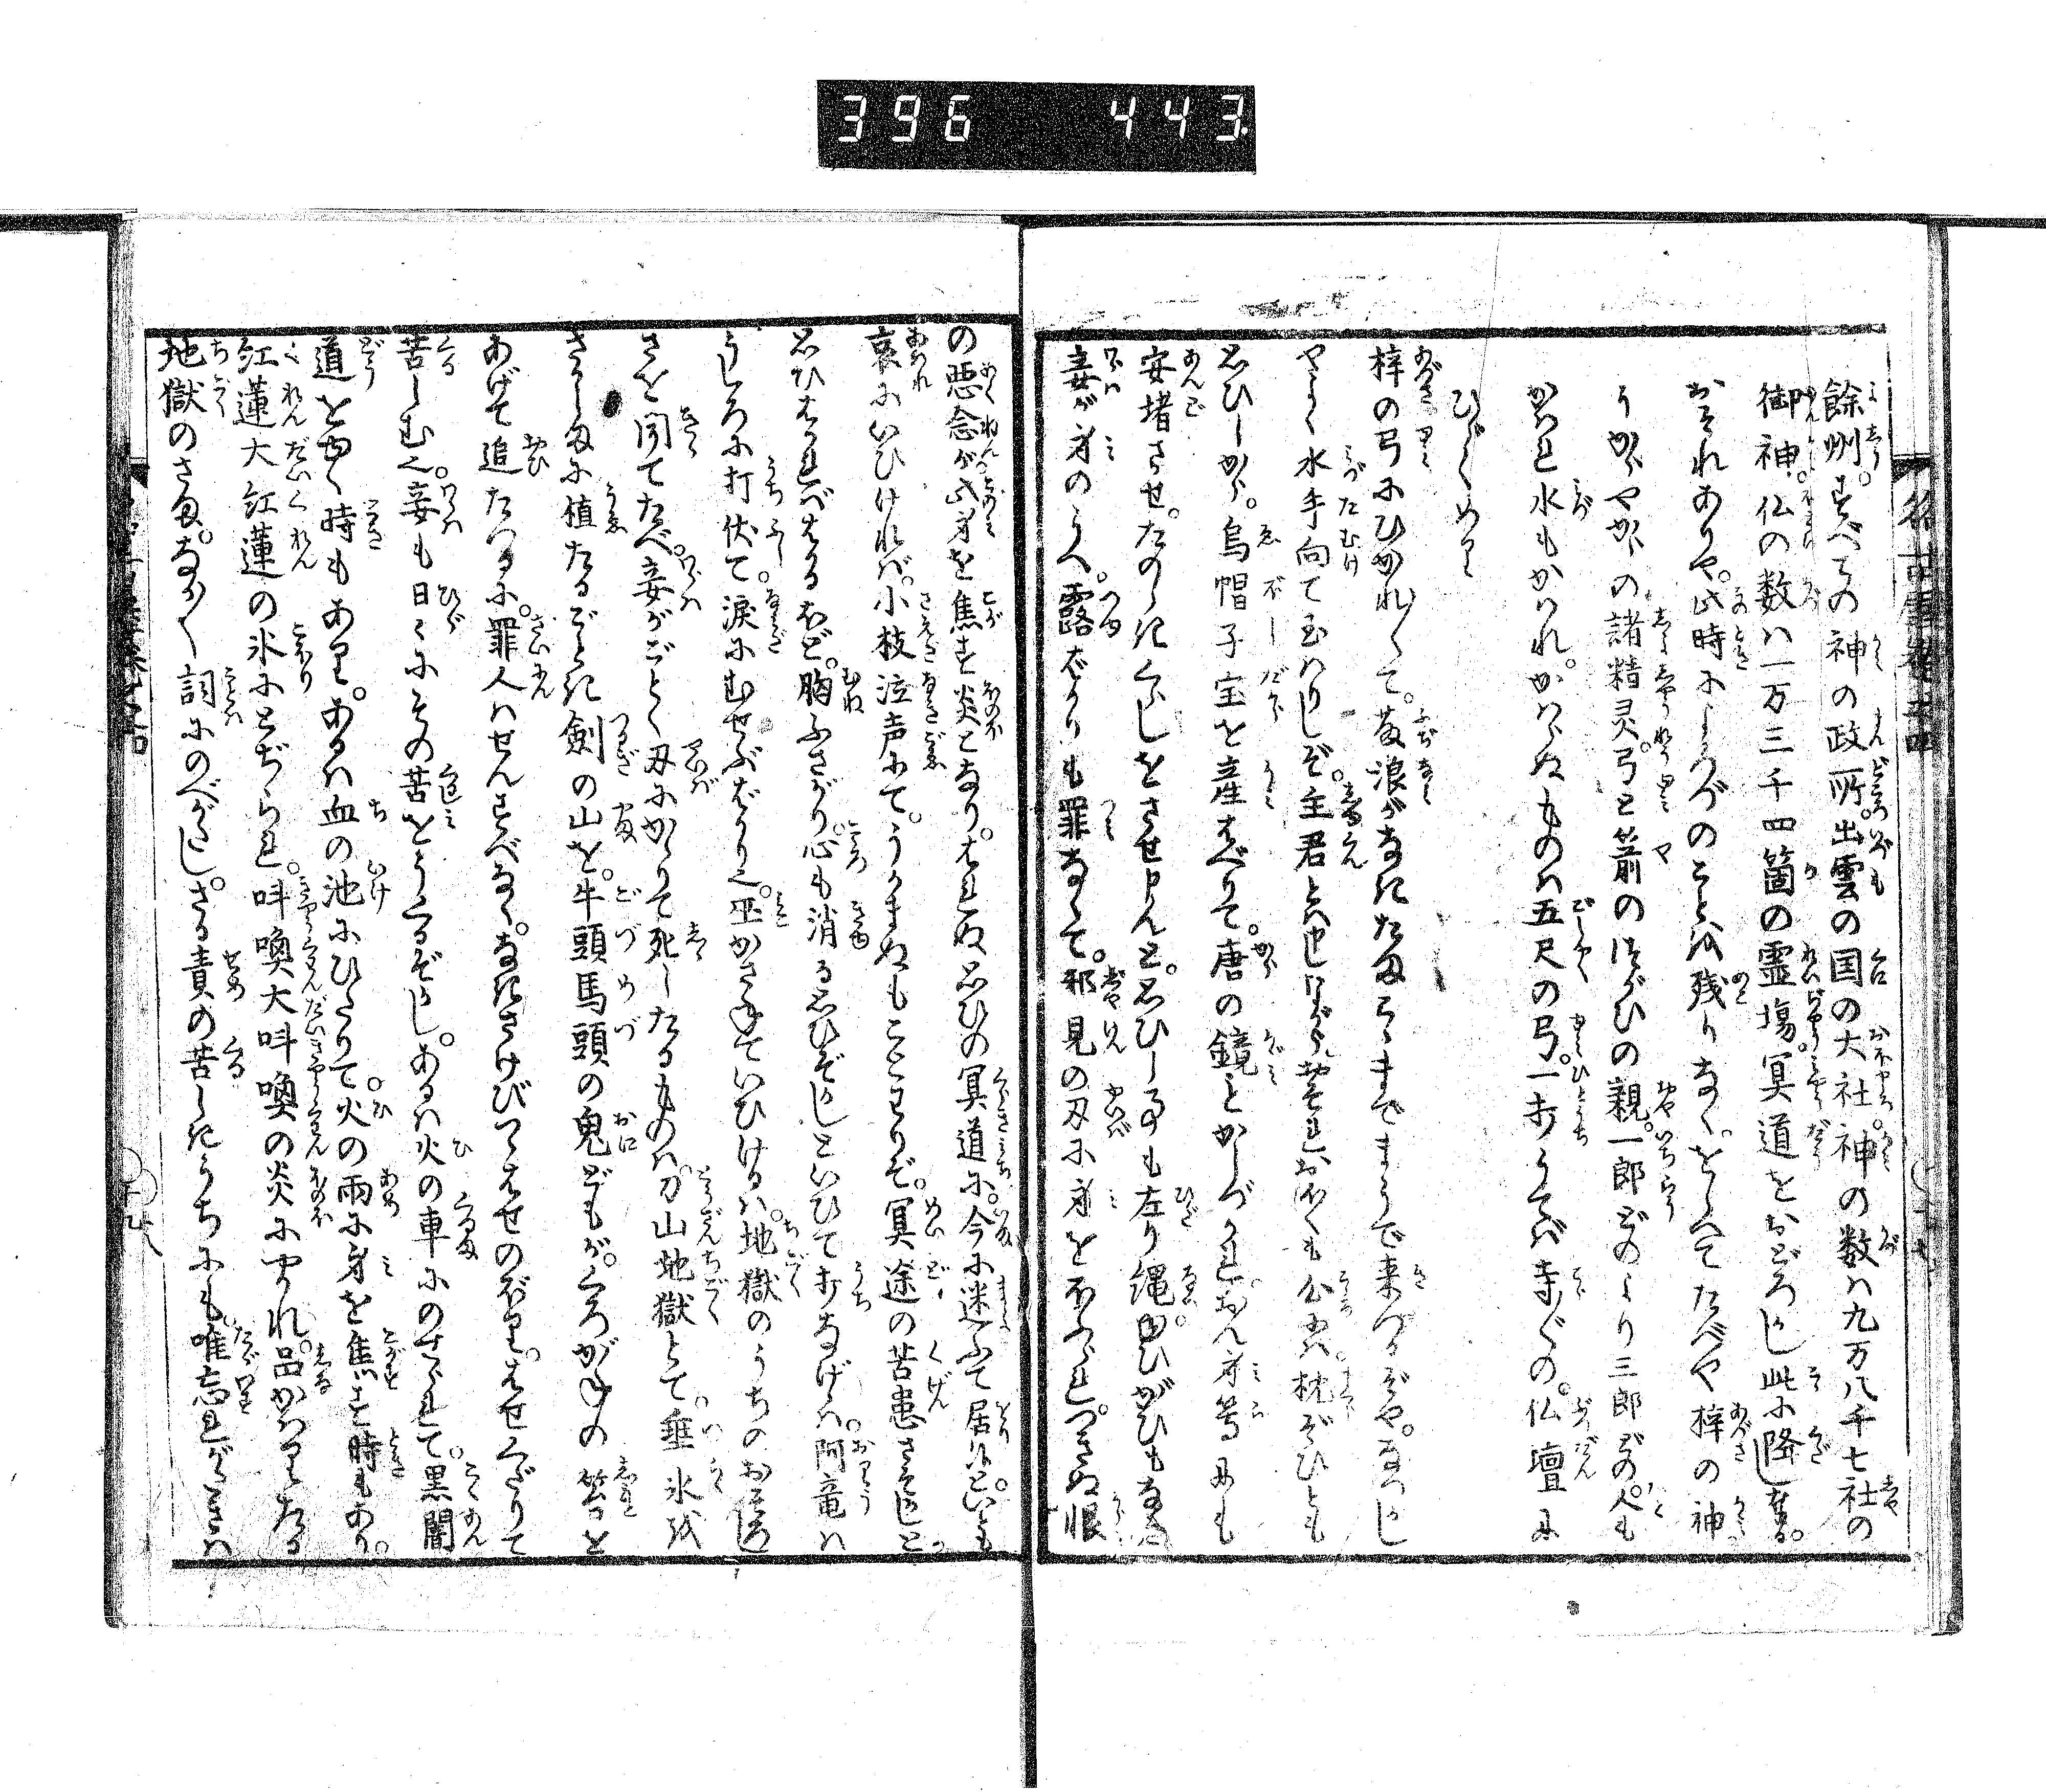 396 443
餘州。すべての神の政所。出雲の国の大社。神の数は九万八千七社の
御神。仏の数は一万三千四箇の霊場。冥道をおどろかし此に降し奉る。
おそれありや。此時によろづのことを残りなく。をしへてたべや梓の神
うからやからの諸精灵。弓と箭のつがひの親。一郎どのより三郎どの。人も
かはれ水もかはれ。かはらぬものは五尺の弓。一打うてば寺〴〵の。仏壇に
ひゞくめり
梓の弓にひかれ〳〵て。藤浪がなきたまこゝまでまうで来つるぞや。なつかし
やよく水手向て玉はりしぞ。主君とは
おほくも公界。枕ぞひとも
思ひしから。烏帽子宝を産はべりて。唐の鏡とかしづかれ。おん身等にも
安堵させ。たのしきくらしをさせ申んと。思ひし事も左り縄。ゆひがひもなき
妾が身のうへ。露ばかりも罪なくて。邪見の刃に身をほふられ。つきぬ恨
の悪念が此身を焦す炎となり。はれぬ思ひの冥道に。今に迷ふて居候といとも
哀にいひければ。小枝泣声にて。うかまぬもことわりぞ。冥途の苦患さぞかしと
思ひはかればはかるほど。胸ふさがり心も消る思ひぞかしといひて打なげけば。阿竜は
うしろに打伏て。涙にむせぶばかり也。巫かさねていひけるは。地獄のうちのおそろし
さを聞てたべ。妾がごとく刃にかゝりて死したるものは。刀山地獄とて。垂氷を
さかしまに植たるごとき剣の山を。牛頭馬頭の鬼どもが。くろがねの笞を
あげて追たつるに。罪人はせんすべなく。なきさけびつゝはせのぼり。はせくだりて
苦しむ也。妾も日々にその苦をうくるぞかし。あるは火の車にのせられて。黒闇
道をゆく時もあり。あるは血の池にひたりて。火の雨に身を焦す時もあり。
紅蓮大紅蓮の氷にとぢられ。叫喚大叫喚の炎にやかれ。品かはりたる
地獄のさま。なか〳〵詞にのべがたし。さる責の苦しきうちにも。唯忘れがたきは